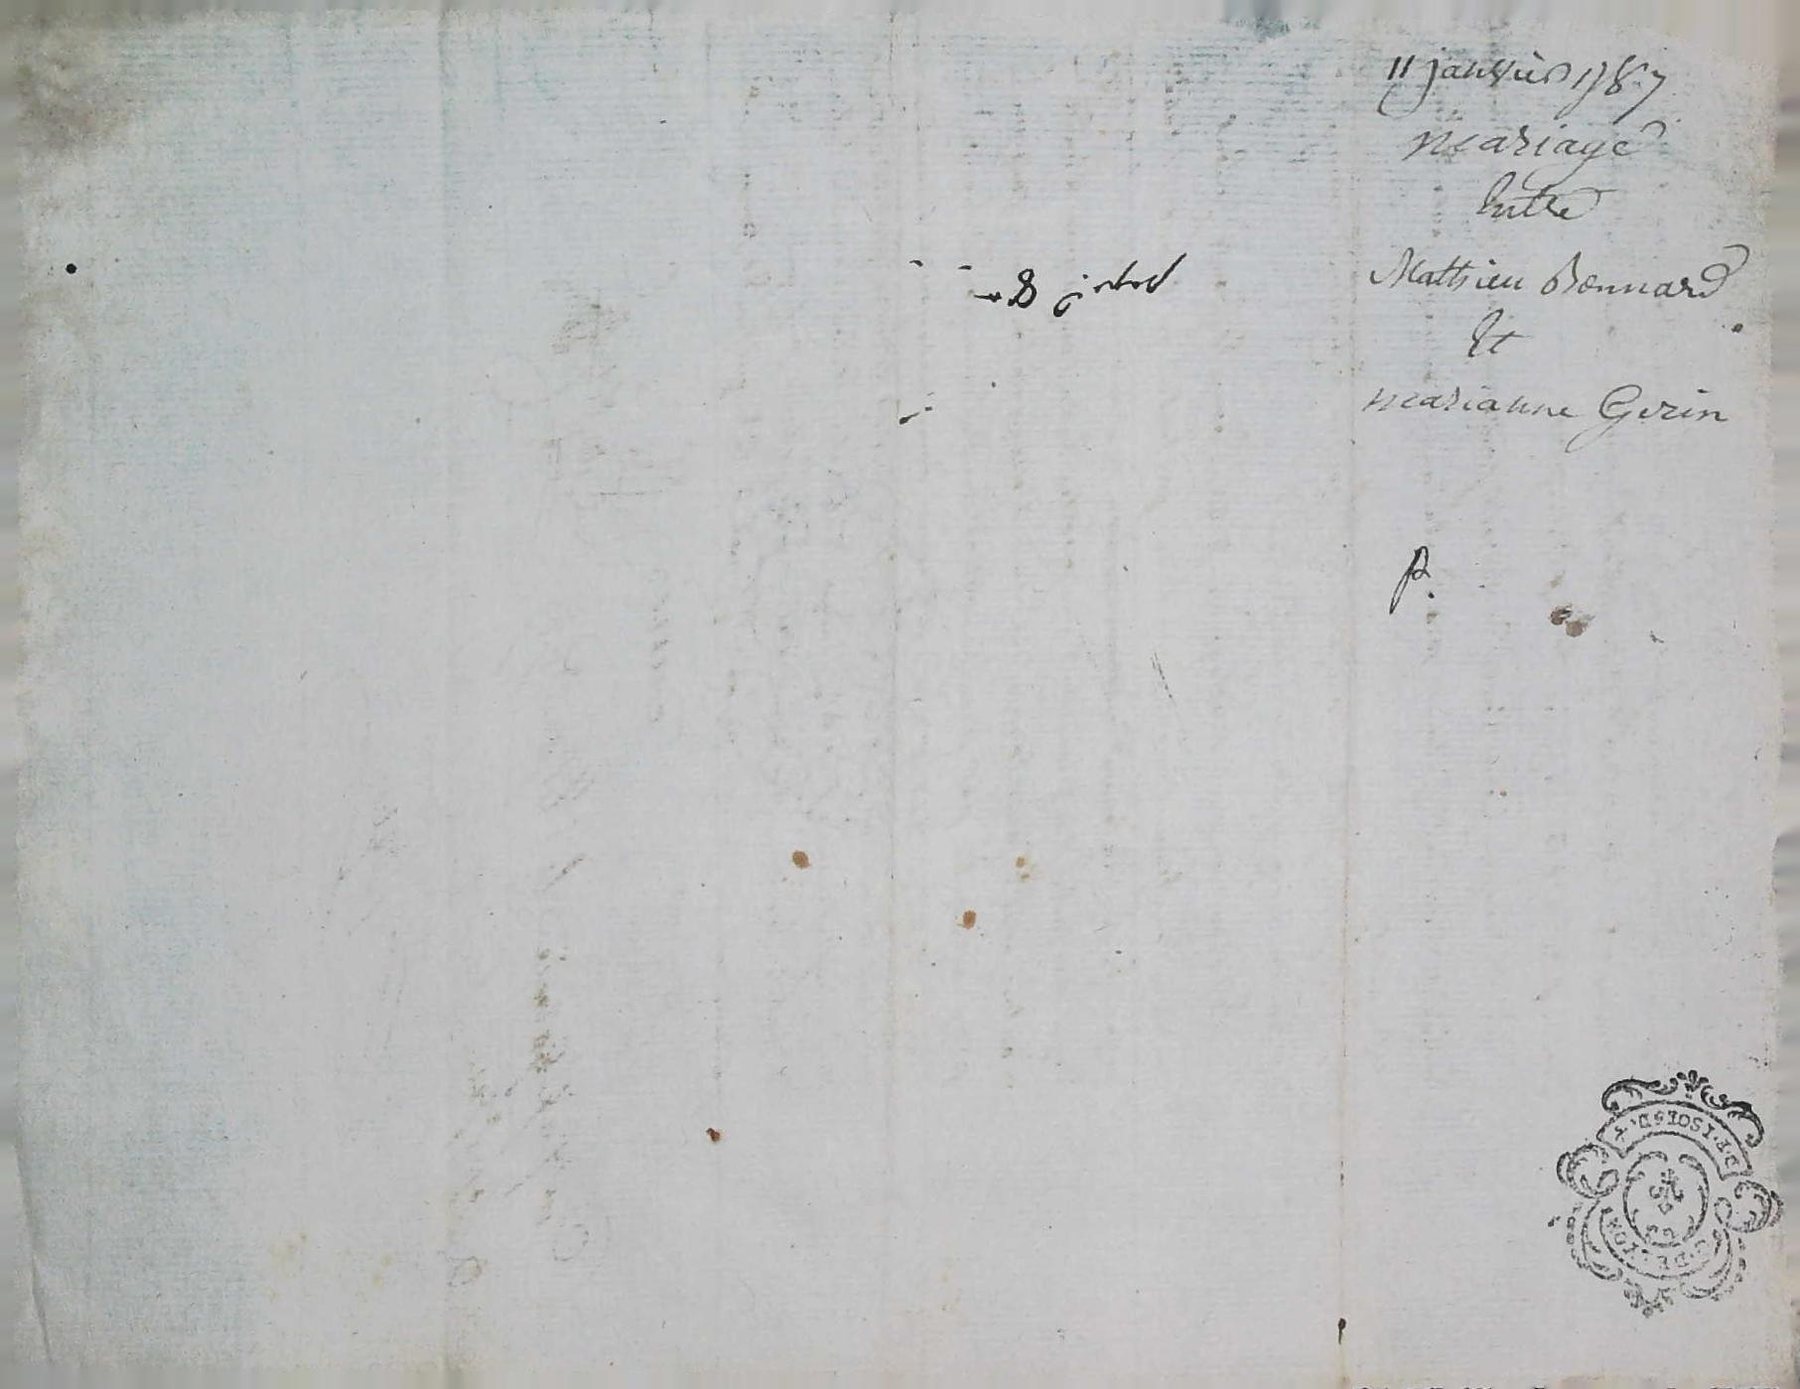 11 janvier 1787
mariage
Entre
Mathieu Bonnard
Et
marianne Gerin
P.
G. DE LYON